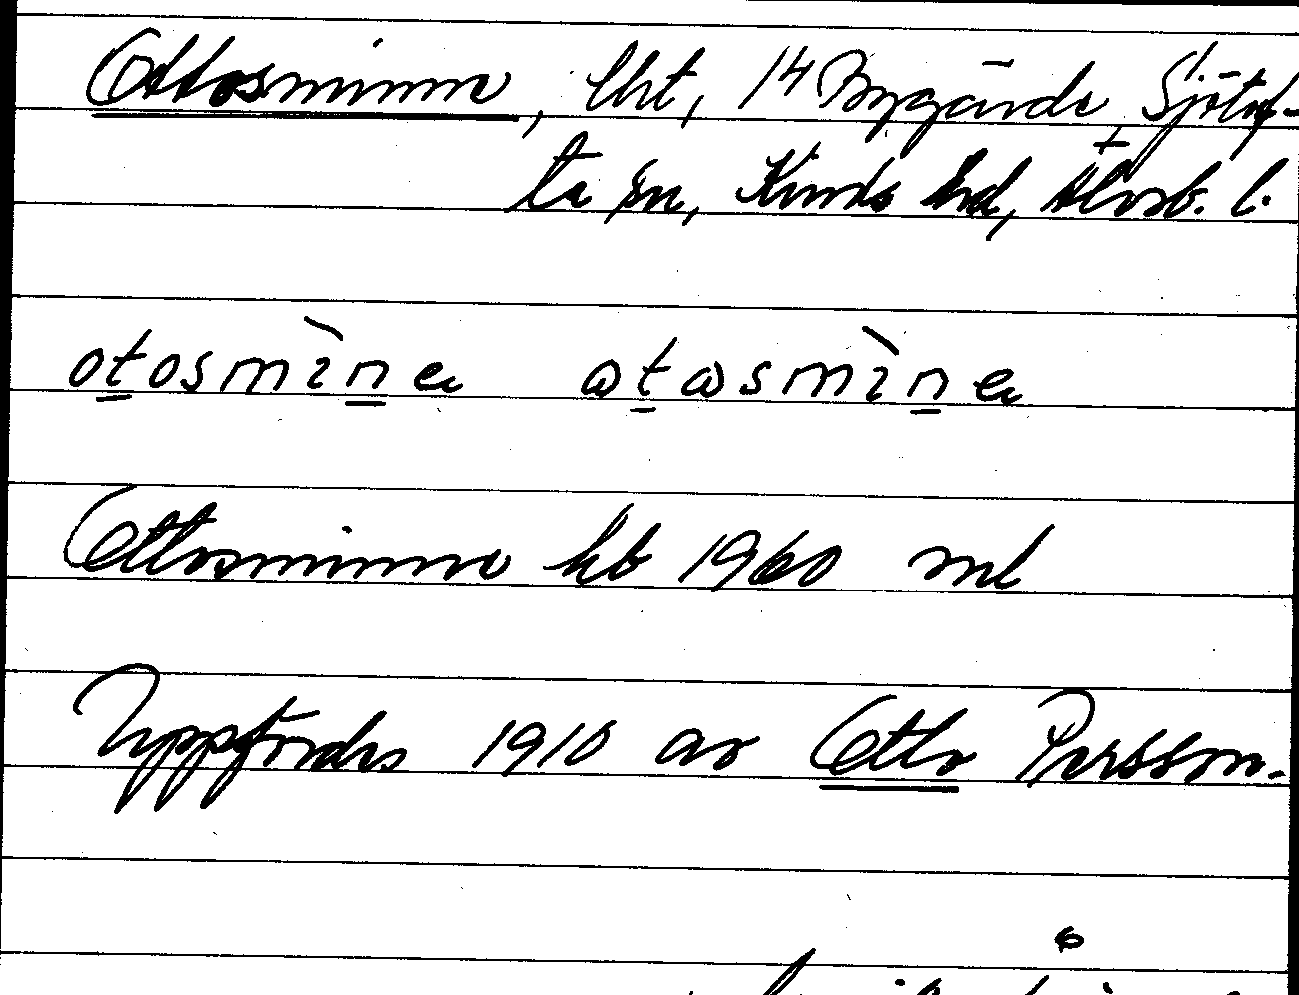 Ottosminne, lht, 14 Bygärde, Sjötof-
ta sn, Kinds hd, Älvsb. l.
otosmìnе otosmìne
Ottosminne kb 1960 ml
Uppfördes 1910 av Otto Persson.